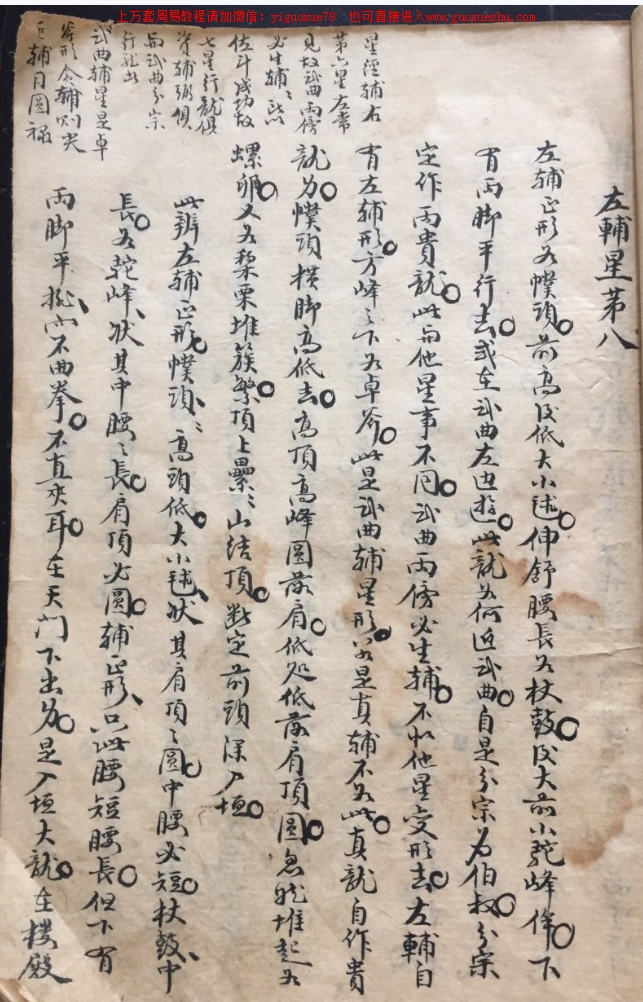 上万套周易教程请加微信：yiguoxue78 也可直接进入www.guoxueshu.com
星 辅右
第六星左常
見故武曲两傍
必生辅々以
佐斗成功故
七星行龍俱
資辅弼俱
與武曲分宗
行龍出
武曲辅星是卓
斧形金辅則尖
巨辅月圓禄
左輔星第八
左辅正形如幞頭○前高後低大小毬○伸舒腰長如杖鼓○後大前小駝峰侔○下
有两脚平行去○或在武曲左边遊○此龍如何近武曲○自是分宗为伯叔○分宗
定作两貴龍○此與他星事不同○武曲两傍必生辅○不似他星变形去○左輔自
有左辅形○方峰之下如卓斧○此是武曲辅星形○若是真辅不如此○真龍自作貴
龍 ○幞頭横脚高低去○高頂高峰圓落肩○低処低落肩頂圓○忽然堆起如
螺卵○又如梨栗堆簇繁○頂上纍々山结頂○断定前頭深入垣○
此辨左辅正形幞頭、々高頭低○大小毬、状其肩頂之圓○中腰必短○杖鼓、中
長○如駝峰、状其中腰之長○肩頂必圓○辅正形、只此腰短腰長○但下有
两脚平拖、而不曲拳○不直夾耳○在天门下出 ○是入垣大龍○在樓殿